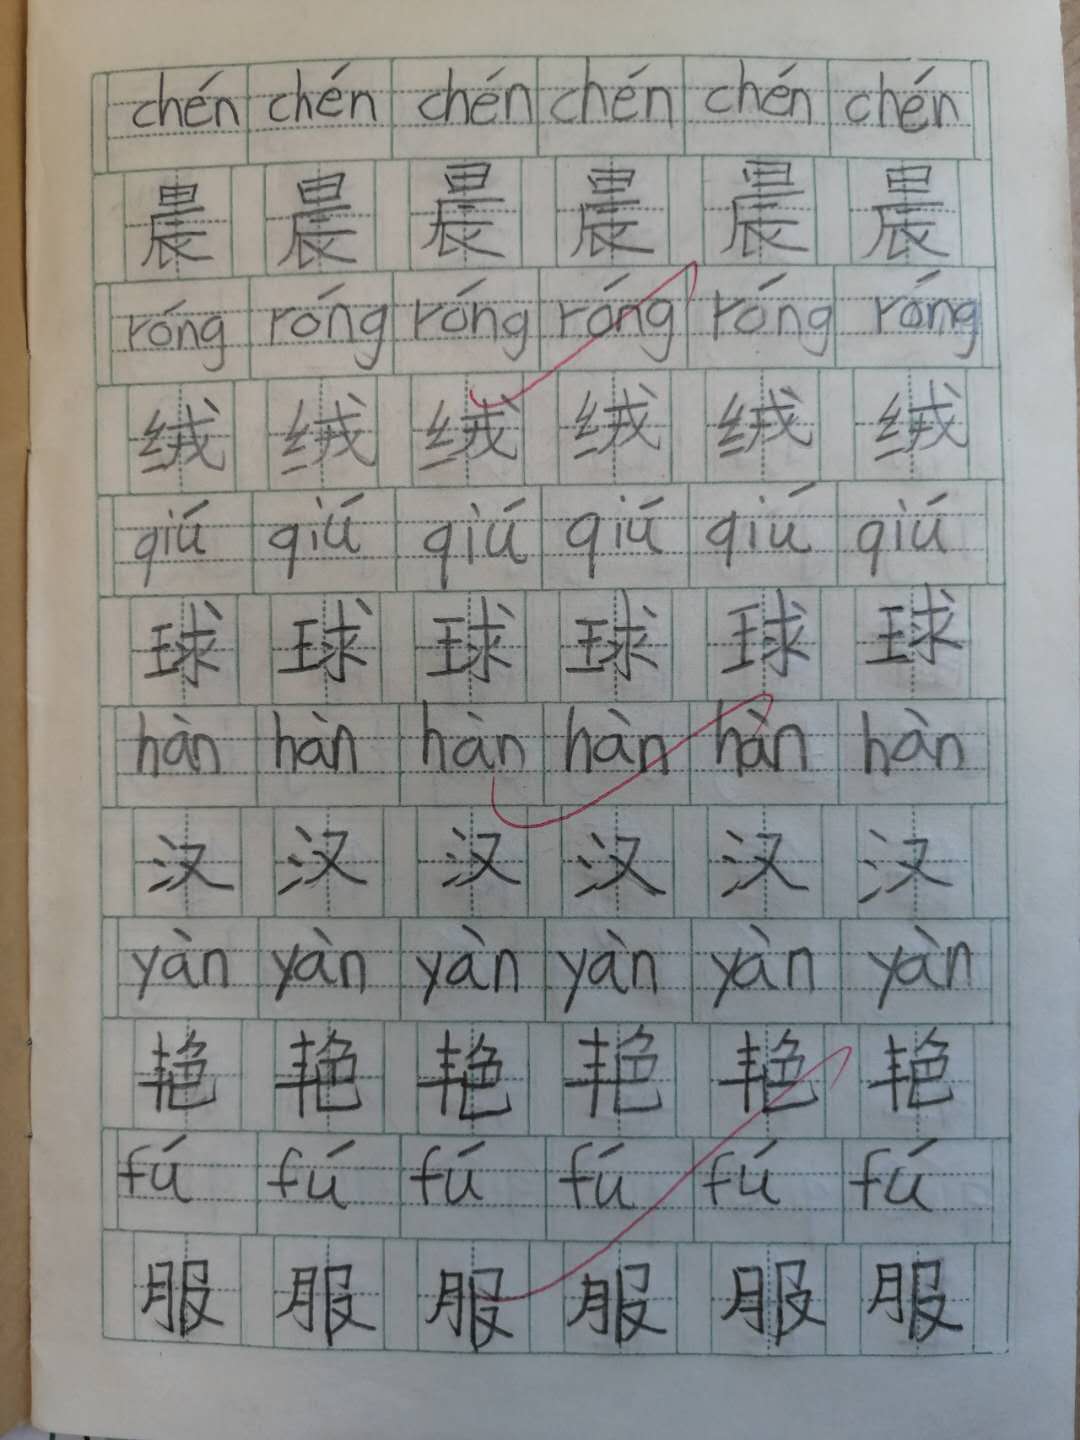 chén chén chén chén chén chén
晨 晨 晨 晨 晨 晨
róng róng róng róng róng róng
绒 绒 绒 绒 绒 绒
qiú qiú qiú qiú qiú qiú
球 球 球 球 球 球
hàn hàn hàn hàn hàn hàn
汉 汉 汉 汉 汉 汉
yàn yàn yàn yàn yàn yàn
艳 艳 艳 艳 艳 艳
fú fú fú fú fú fú
服 服 服 服 服 服